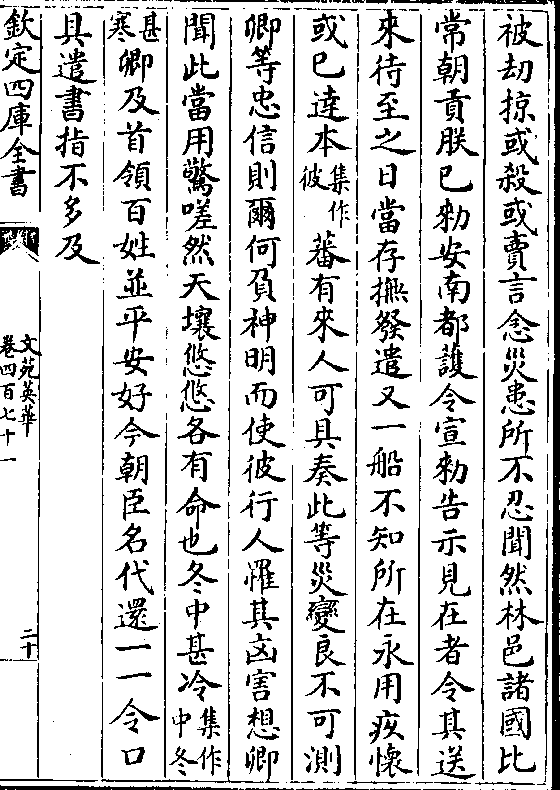 被刼掠或殺或賣言念災患所不忍聞然林邑諸國比
常朝貢朕已勑安南都護令宣勑告示見在者令其送
來待至之日當存撫發遣又一船不知所在永用疚懷
或已達本集作彼蕃有來人可具奏此等災變良不可測
卿等忠信則爾何負神明而使彼行人罹其凶害想卿
聞此當用驚嗟然天壤悠悠各有命也冬中甚冷集作中冬
甚寒卿及首領百姓並平安好今朝臣名代還一一令口
具遣書指不多及
欽定四庫全書
文苑英華
卷四百七十一
二十